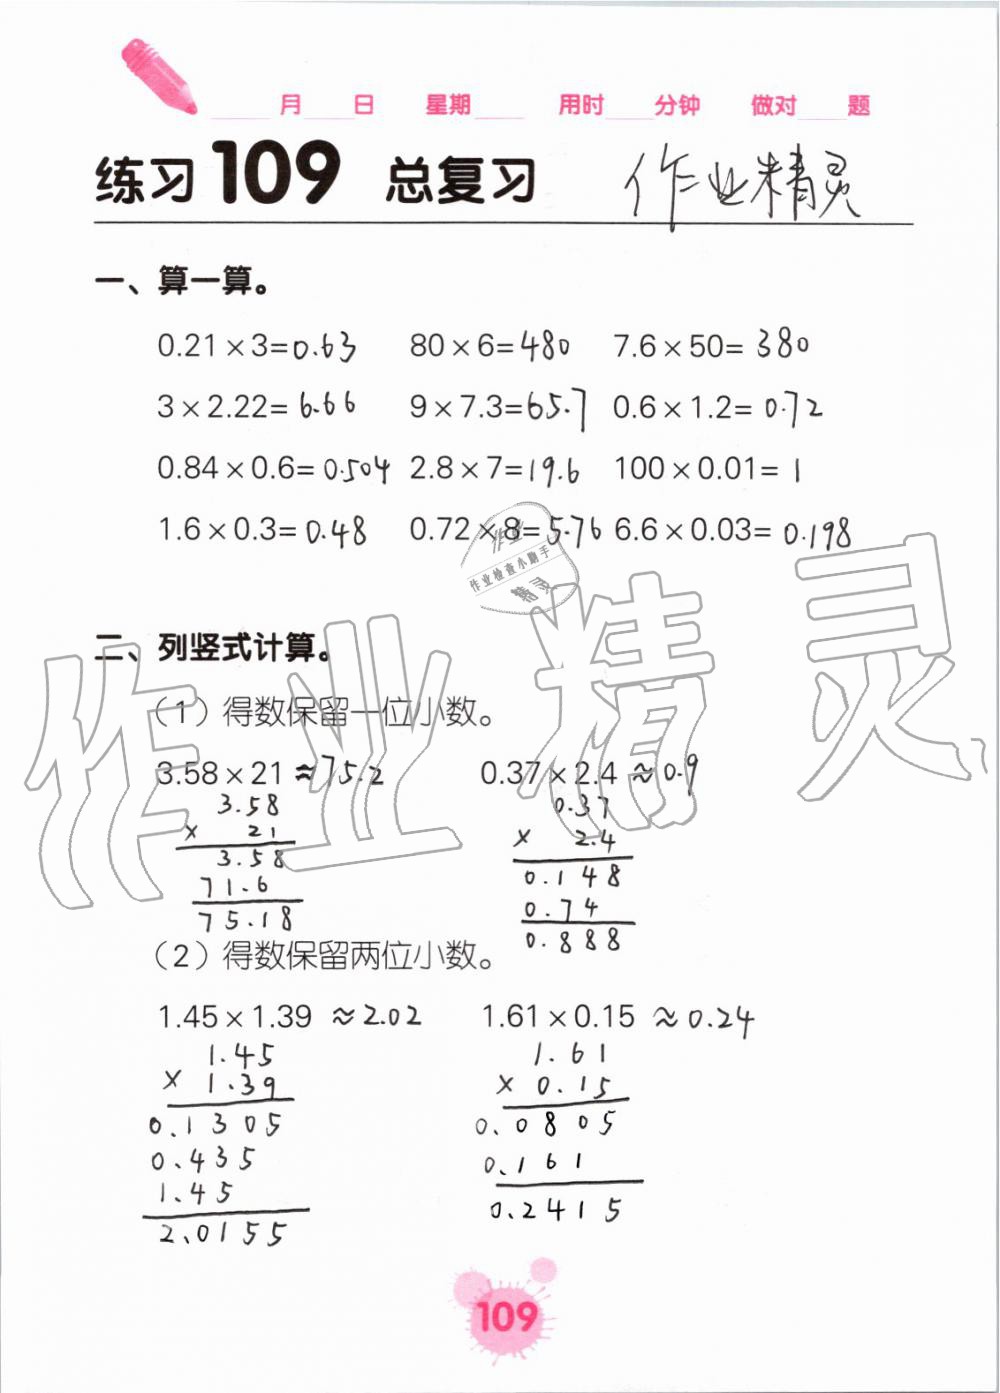 月 日 星期 用时 分钟 做对 题
练习109 总复习 作业精灵
一、算一算。
0.21×3=0.63 80×6=480 7.6×50=380
3×2.22=6.66 9×7.3=65.7 0.6×1.2=0.72
0.84×0.6=0.504 2.8×7=19.6 100×0.01=1
1.6×0.3=0.48 0.72×8=5.76 6.6×0.03=0.198
作业
作业检查小助手
精灵
作业精灵
二、列竖式计算。
（1）得数保留一位小数。
3.58×21≈75.2 0.37×2.4≈0.9
3.58 0.37
× 21 × 2.4
3.58 0.148
71.6 0.74
75.18 0.888
（2）得数保留两位小数。
1.45×1.39≈2.02 1.61×0.15≈0.24
1.45 1.61
× 1.39 × 0.15
0.1305 0.0805
0.435 0.161
1.45 0.2415
2.0155
109